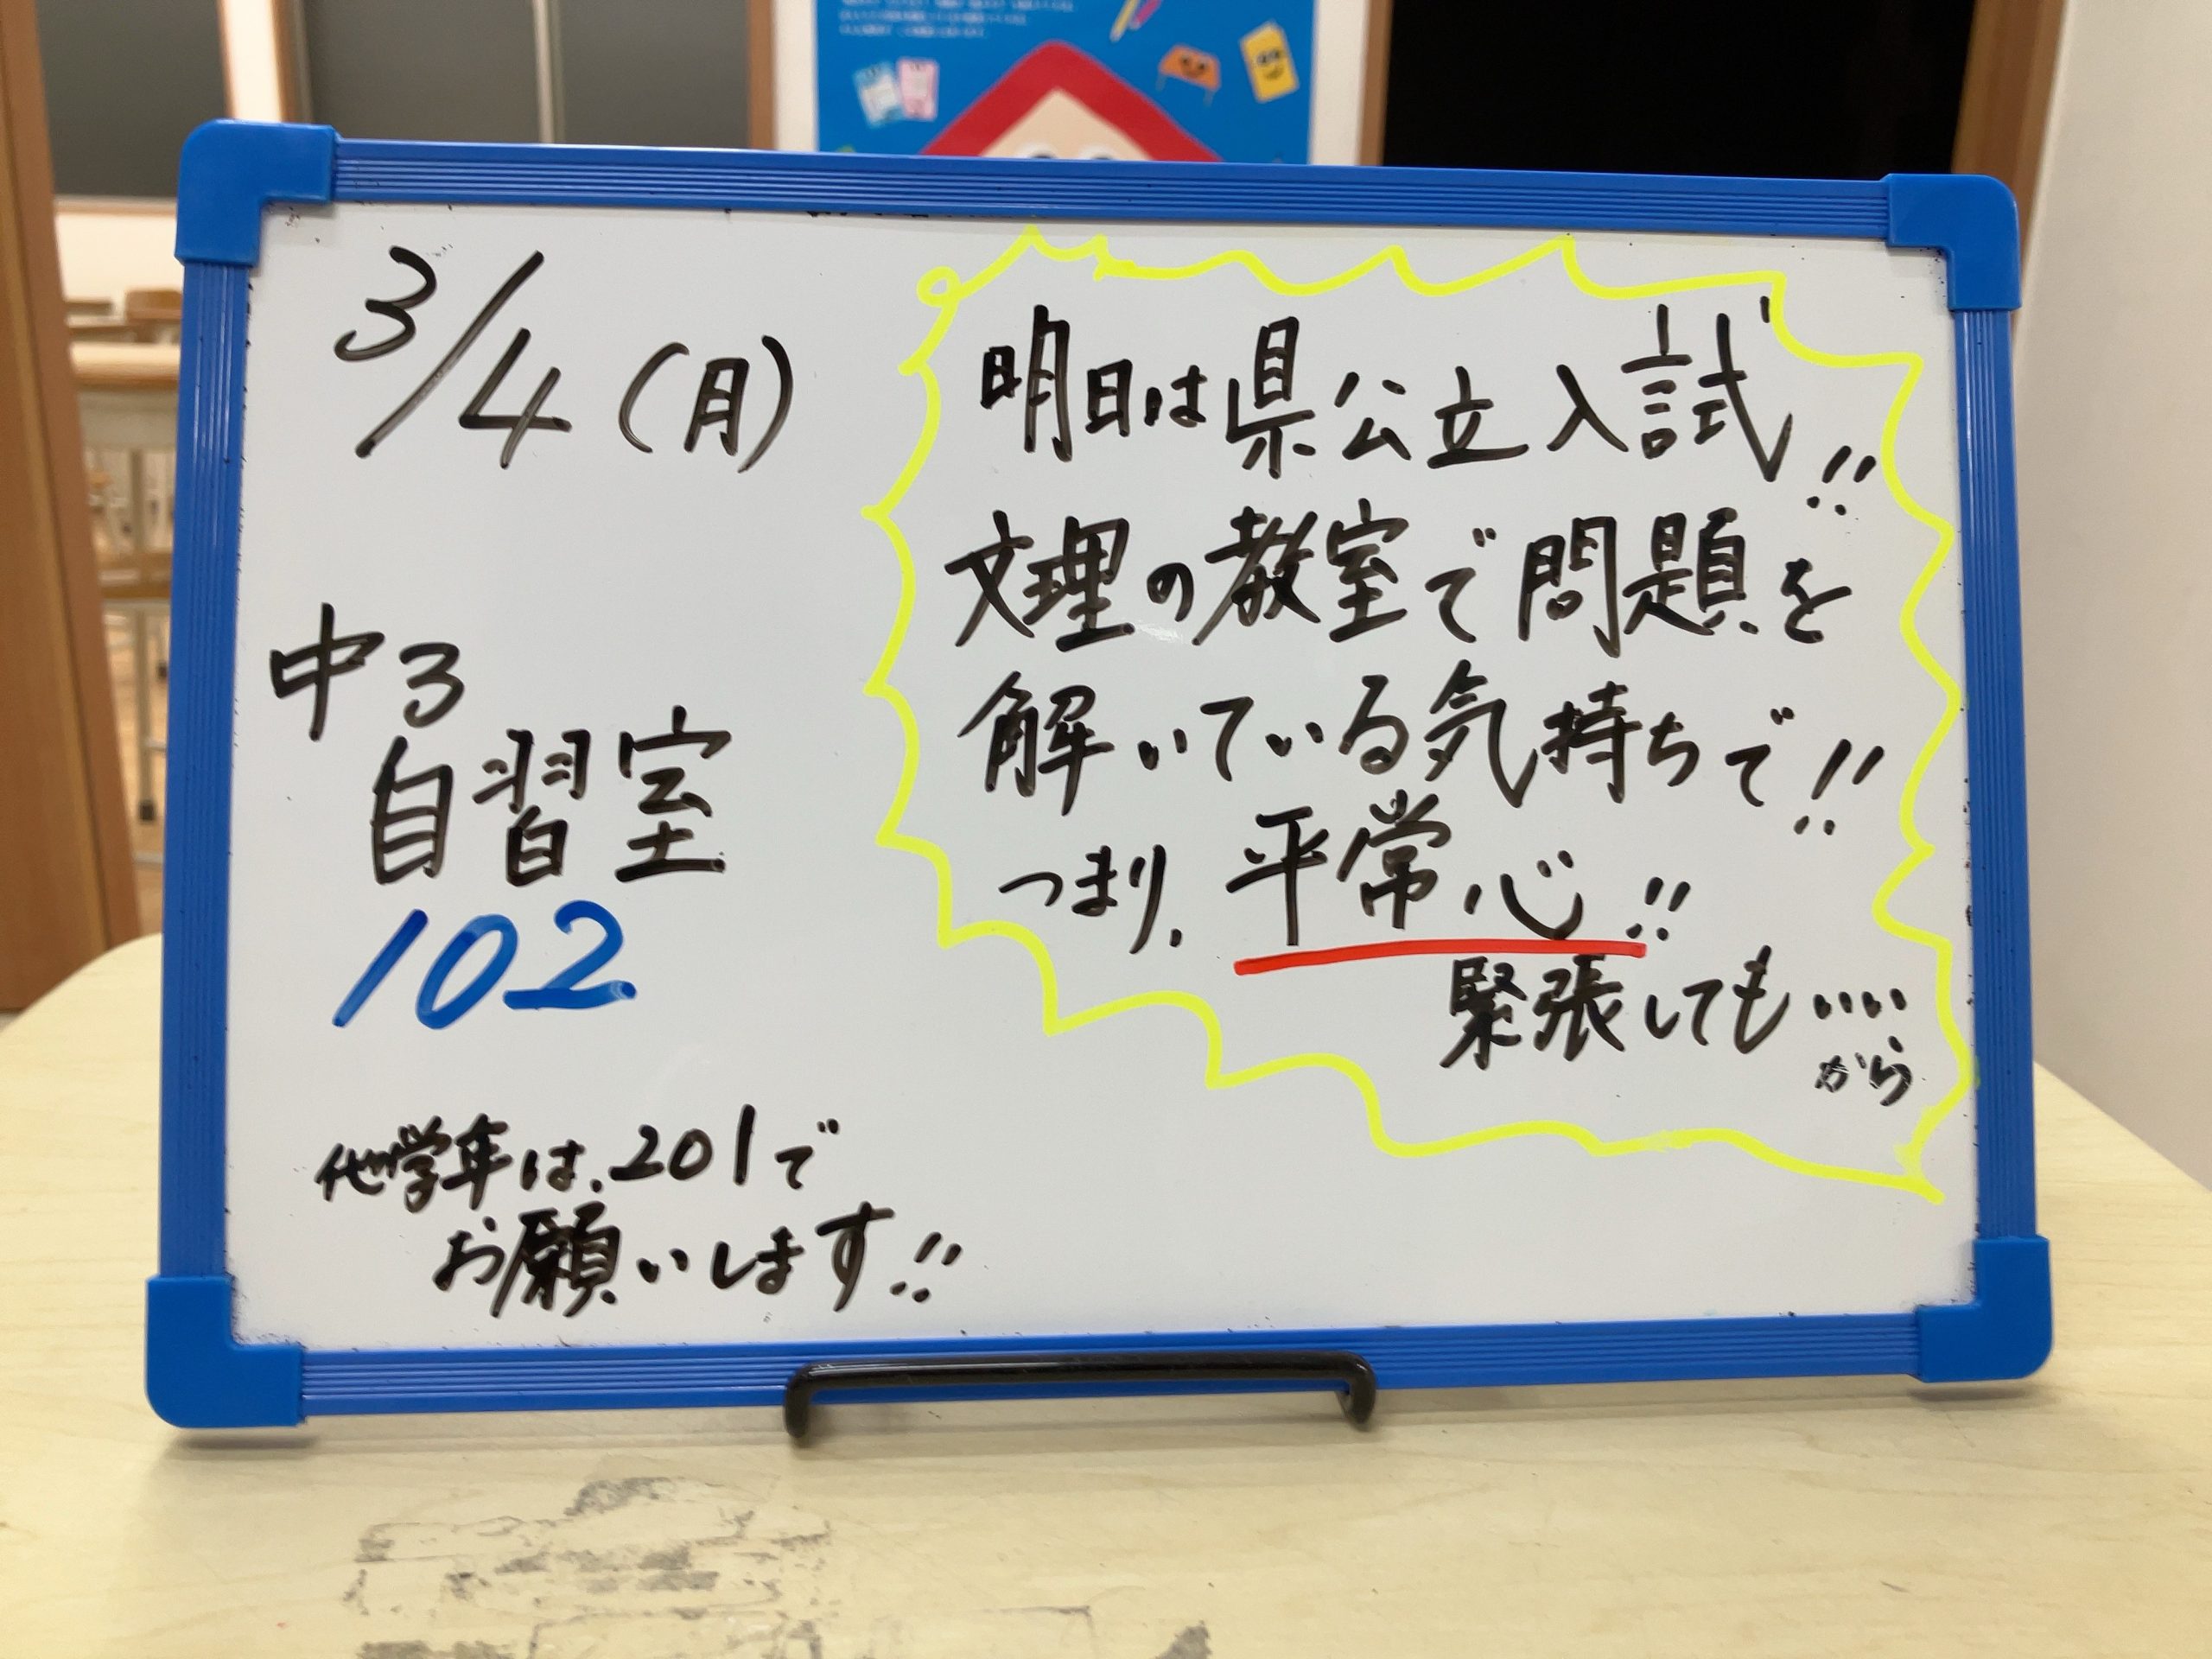 3/4(月)
中3
自習室
102
他学年は、201で
お願いします!!
明日は県公立入試!!
文理の教室で問題を
解いている気持ちで!!
つまり、平常心!!
緊張してもいい
から